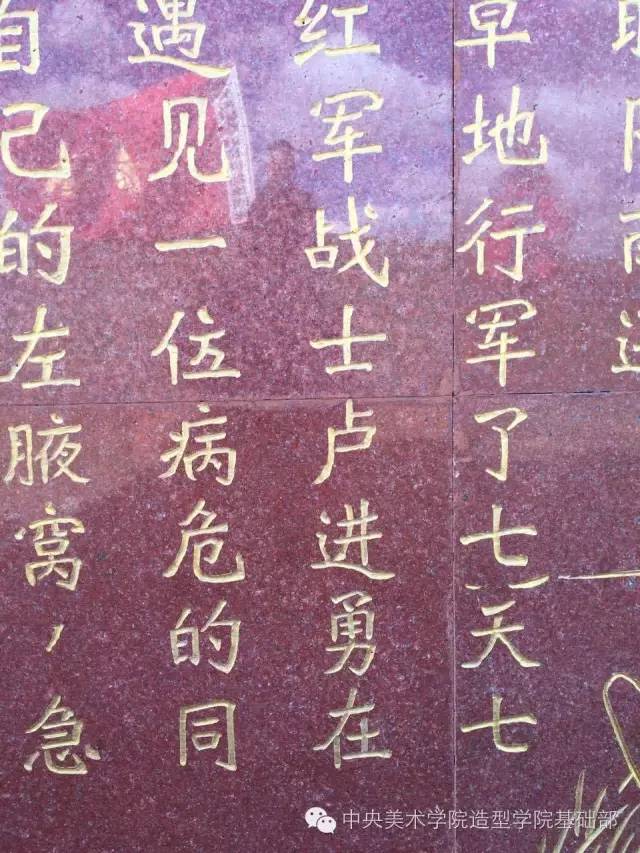 草地行军了七天七
红军战士卢进勇在
遇见一位病危的同
自己的左腋窝，急
中央美术学院造型学院基础部